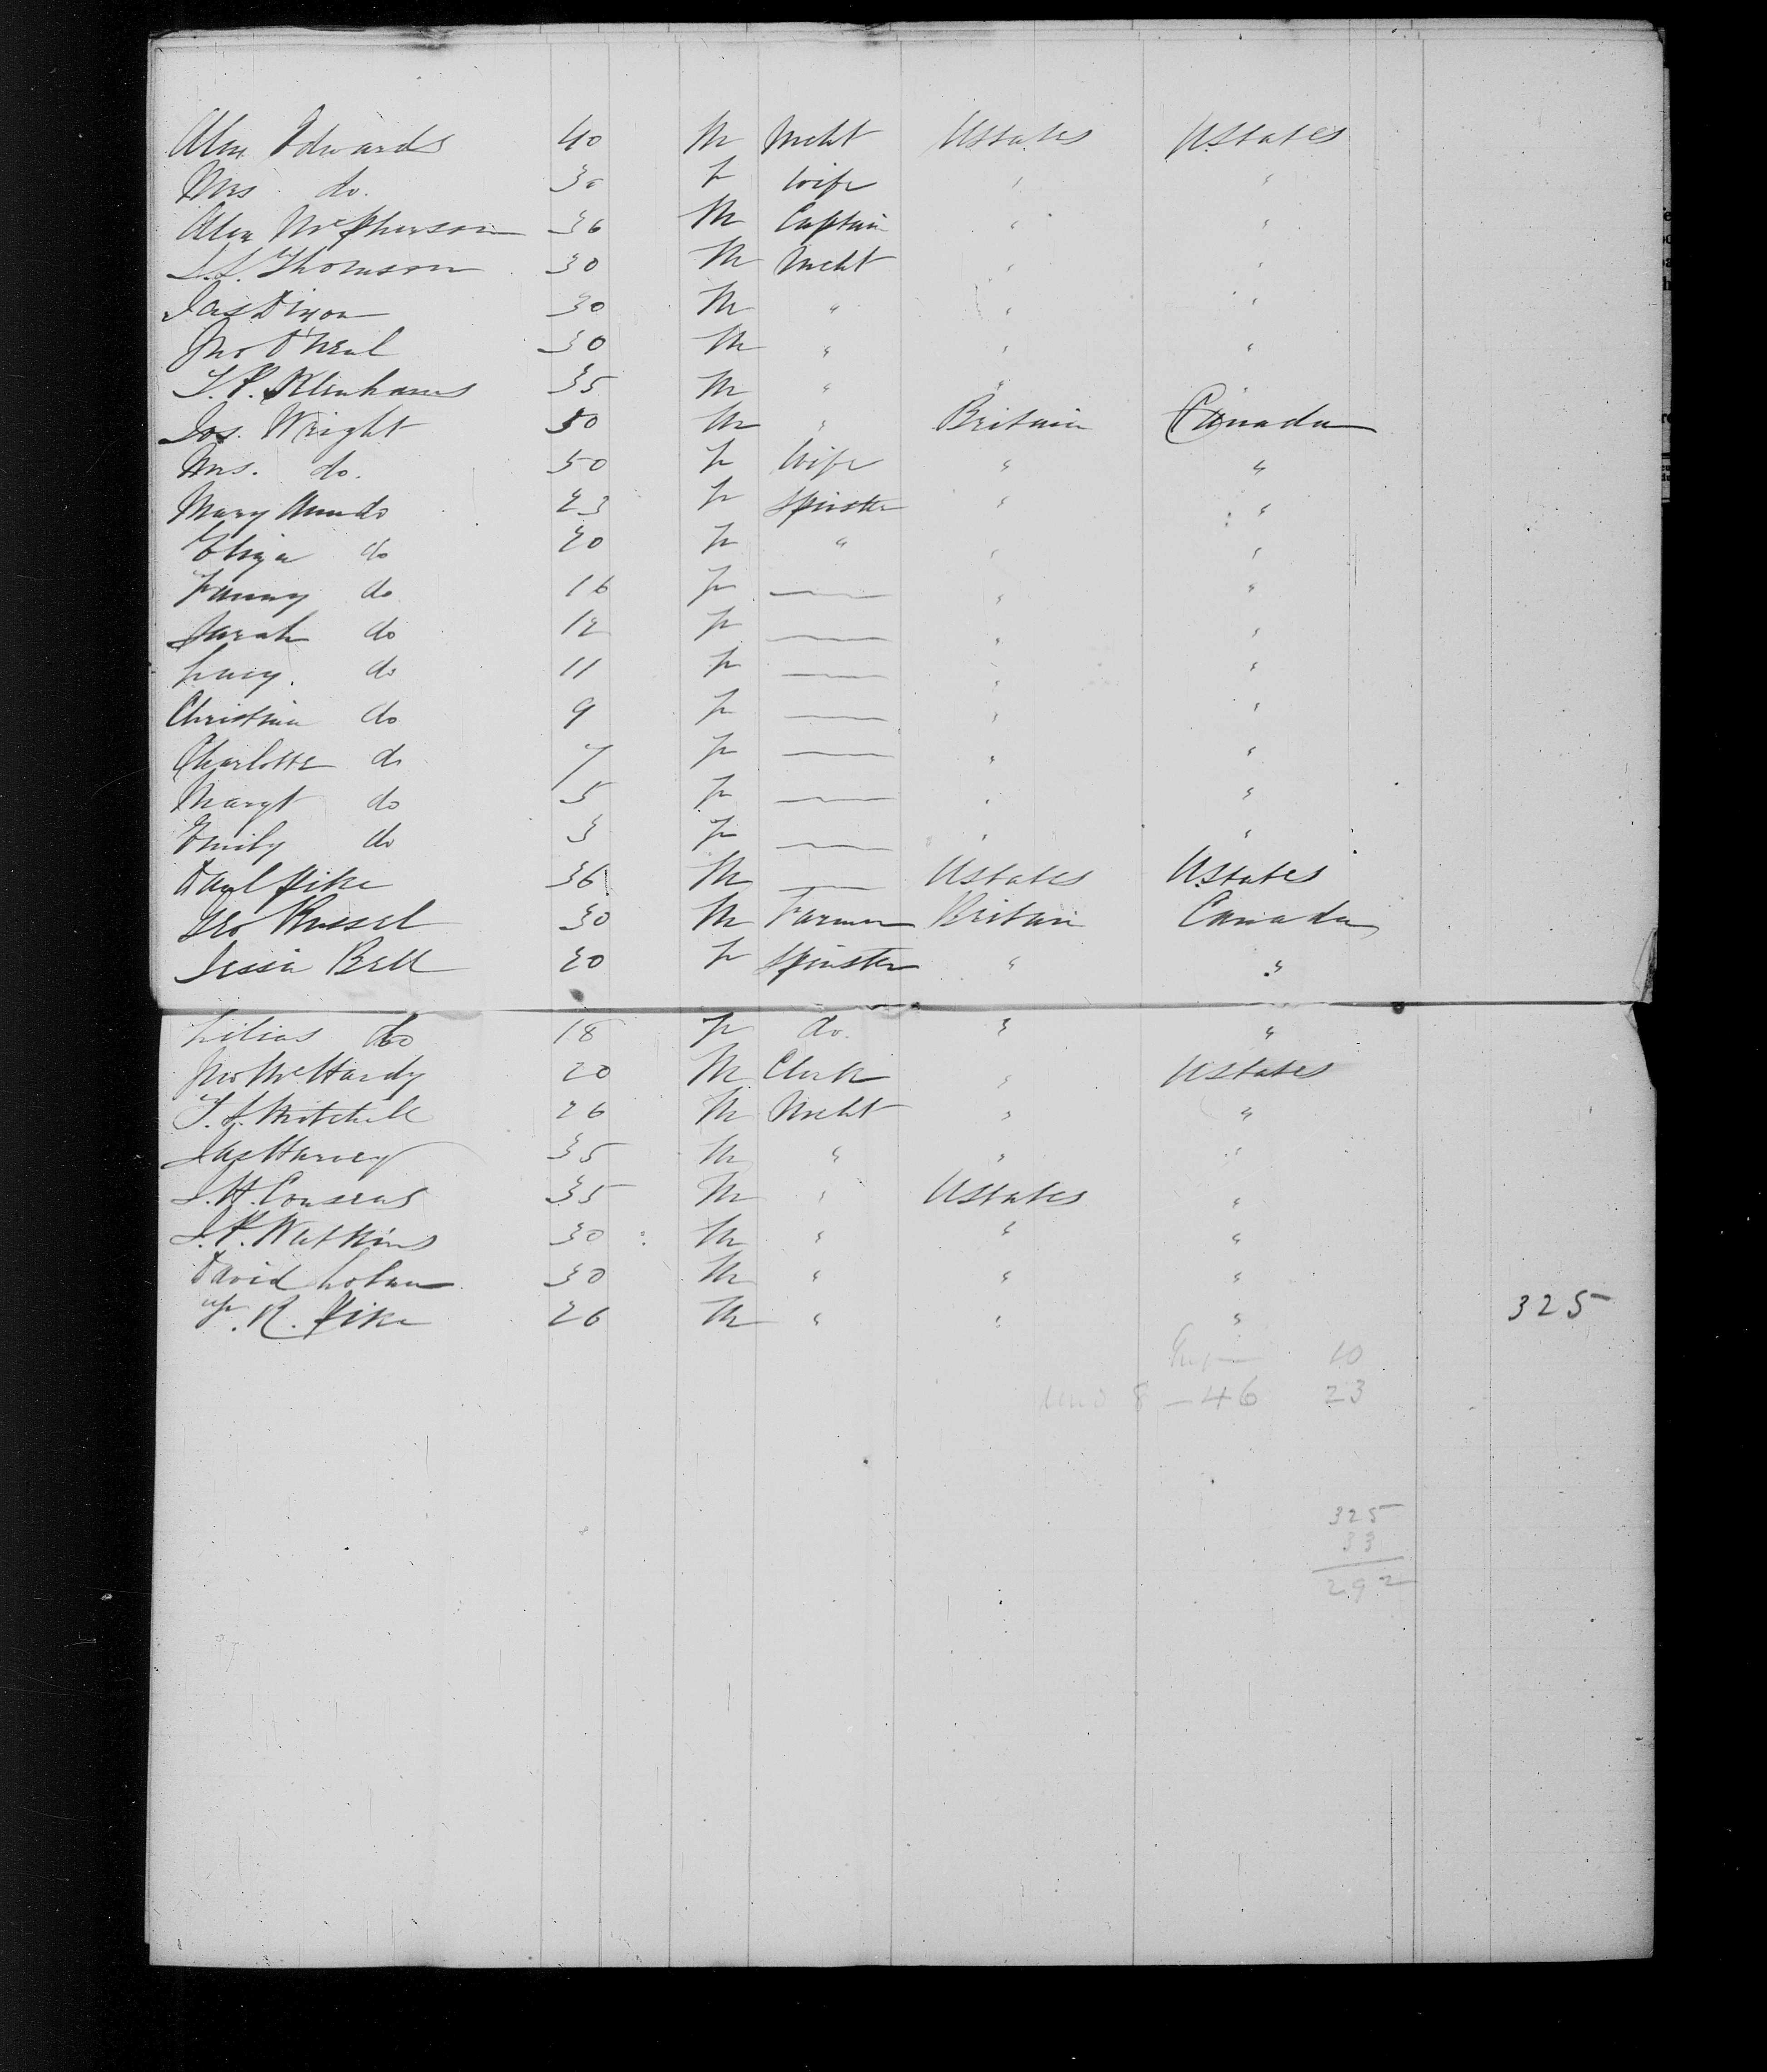 Alex Edwards 40 M Mcht UStates UStates
Mrs do. 30 F Wife " "
Alex McPherson 36 M Captain " "
J. S. Thomson 30 M Mcht " "
Jas Dixon 30 M " " "
Jno O'Neal 30 M " " "
T. P. 35 M " " "
Jos. Wright 50 M " Britain Canada
Mrs. do. 50 F Wife " "
Mary Ann do 23 F Spinster " "
Eliza do 20 F " " "
Fanny do 16 F — " "
Sarah do 12 F — " "
Lucy. do 11 F — " "
Christina do 9 F — " "
Charlotte do 7 F — " "
Margt do 5 F — " "
Emily do 3 F — " "
Danl Pike 36 M — UStates UStates
Geo Russel 30 M Farmer Britain Canada
Jessie Bell 20 F Spinster " "
Lilias do 18 F do. " "
Jno McHardy 20 M Clerk " UStates
T. S. Mitchell 26 M Mcht " "
Jas Harvey 35 M " " "
J. H. Couseus 35 M " UStates "
J. P. Watkins 30 M " " "
David 30 M " " "
R. Pike 26 M " " " 325
10
8 — 46 23
325
33
292